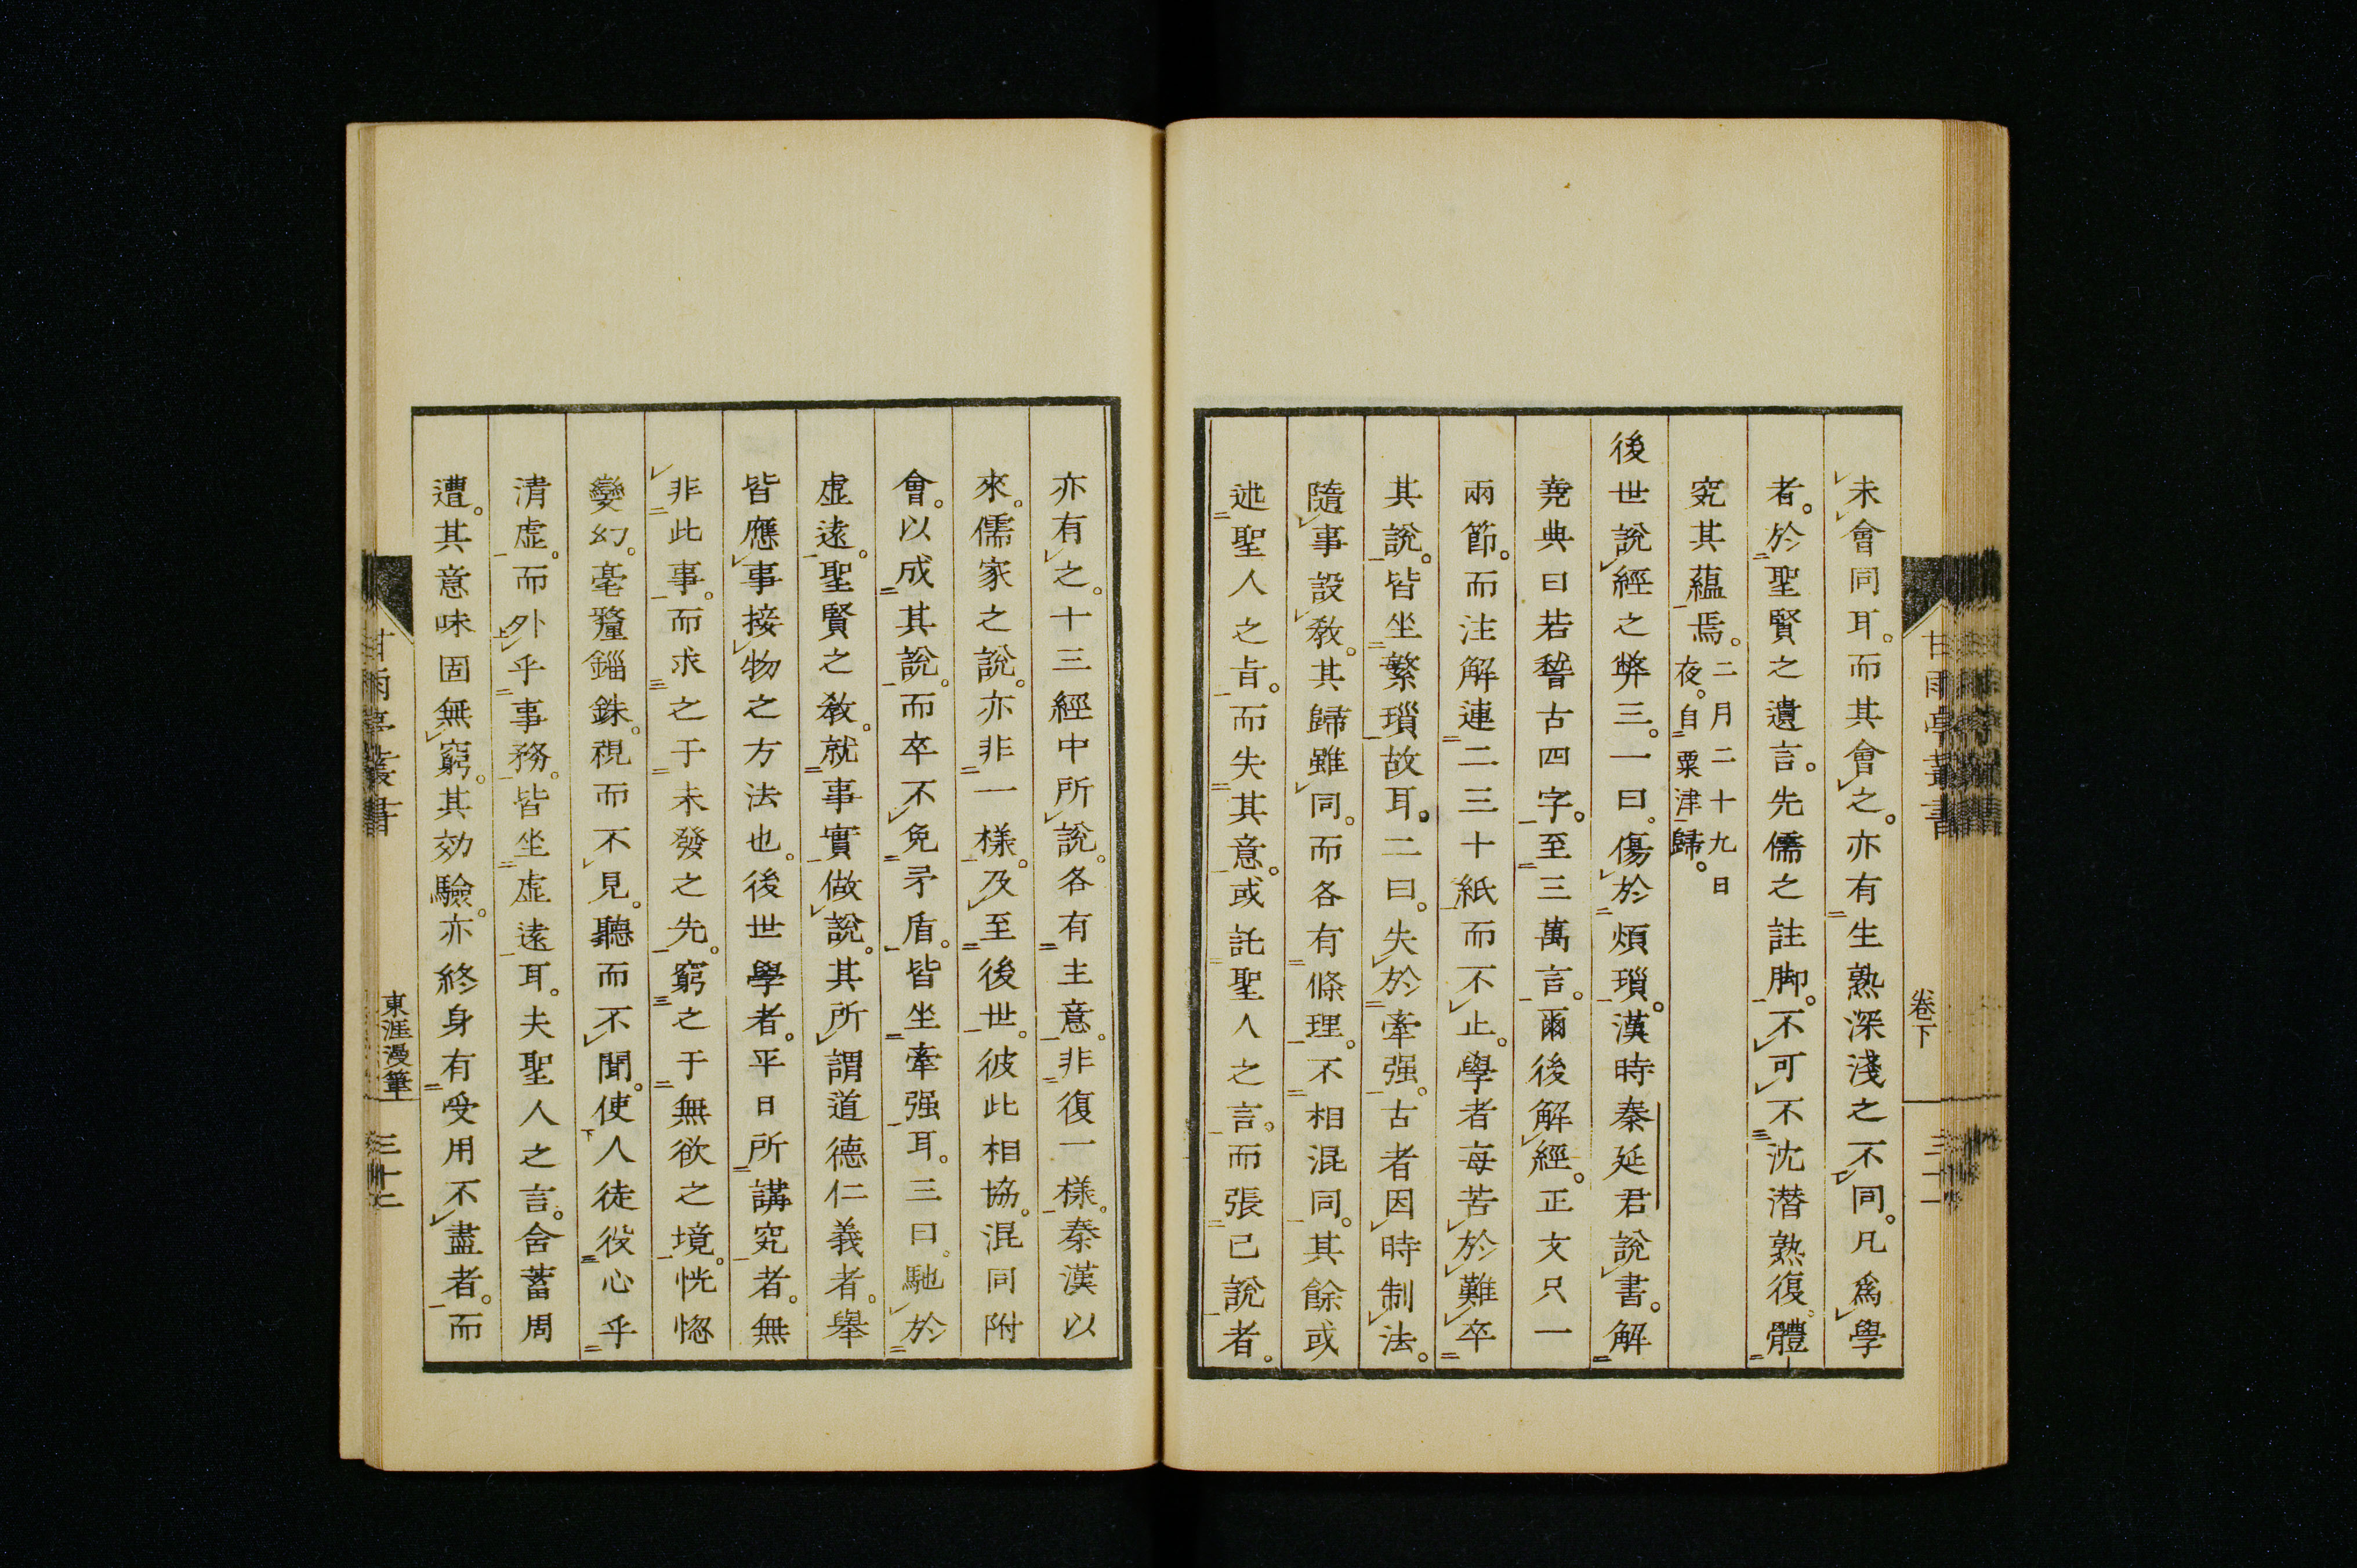 未會同耳。而其會之。亦有生熟深淺之不同。凡爲學
者。於聖賢之遺言。先儒之註脚。不可不沈潛熟復。體
究其蘊焉。二月二十九日
夜。自粟津歸。
後世說經之弊三。一曰。傷於煩瑣。漢時秦延君說書。解
堯典曰若稽古四字。至三萬言。爾後解經。正文只一
兩節。而注解連二三十紙而不止。學者每苦於難卒
其說。皆坐繁瑣故耳。二曰。失於牽强。古者因時制法。
隨事設敎。其歸雖同。而各有條理。不相混同。其餘或
述聖人之旨。而失其意。或託聖人之言。而張己說者。
甘雨亭叢書
卷下
亦有之。十三經中所說。各有主意。非復一樣。秦漢以
來。儒家之說。亦非一樣。及至後世。彼此相協。混同附
會。以成其說。而卒不免矛盾。皆坐牽强耳。三曰。馳於
虛遠。聖賢之敎。就事實做說。其所謂道德仁義者。舉
皆應事接物之方法也。後世學者。平日所講究者。無
非此事。而求之于未發之先。窮之于無欲之境。恍惚
變幻。毫釐錙銖。視而不見。聽而不聞。使人徒役心乎
淸虛。而外乎事務。皆坐虛遠耳。夫聖人之言。含蓄周
遭。其意味固無窮。其効驗。亦終身有受用不盡者。而
甘雨亭叢書
東涯漫筆